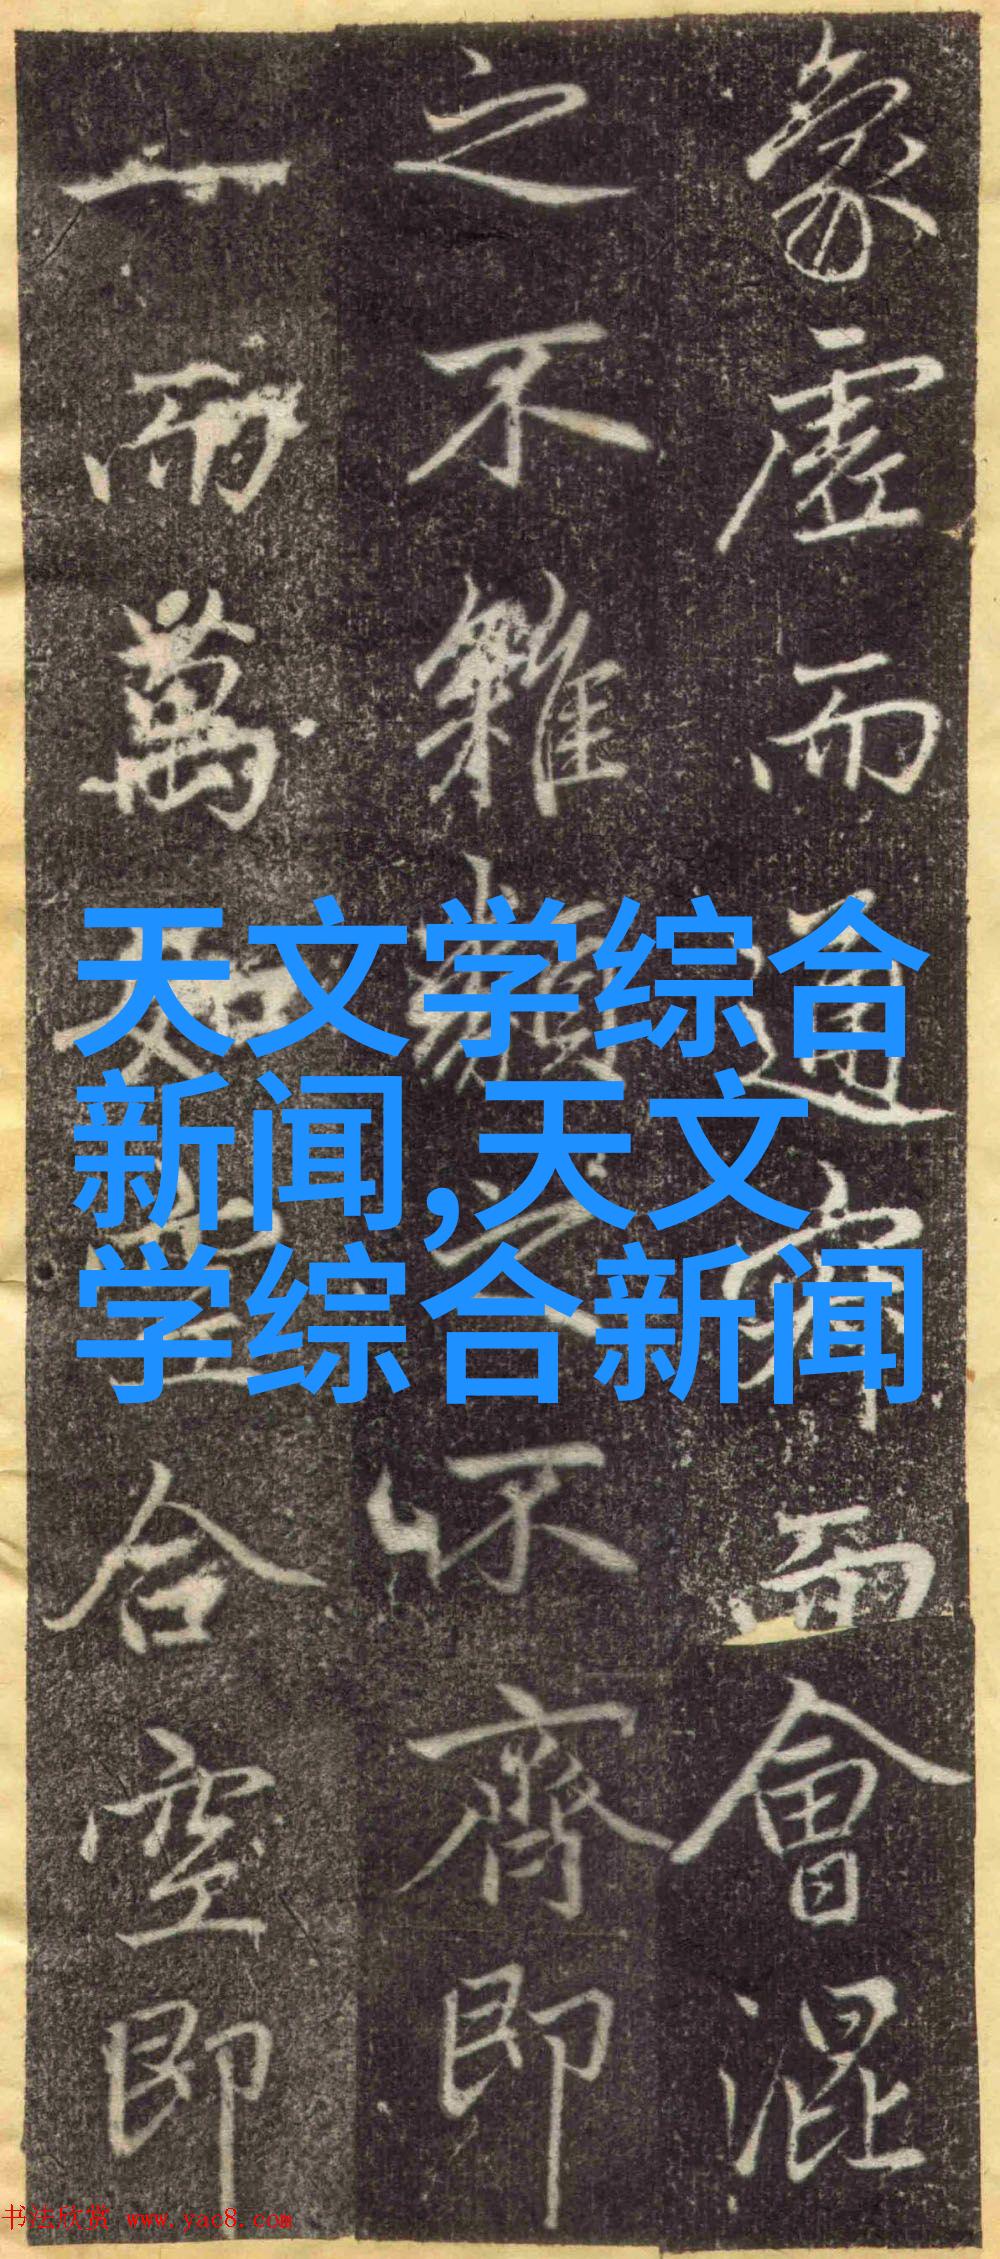 象虛而通而會混
之不雜類之不齊即
一而萬合空即
天文学综合
新闻,天文
学综合新闻
书法欣赏 www.yac8.com